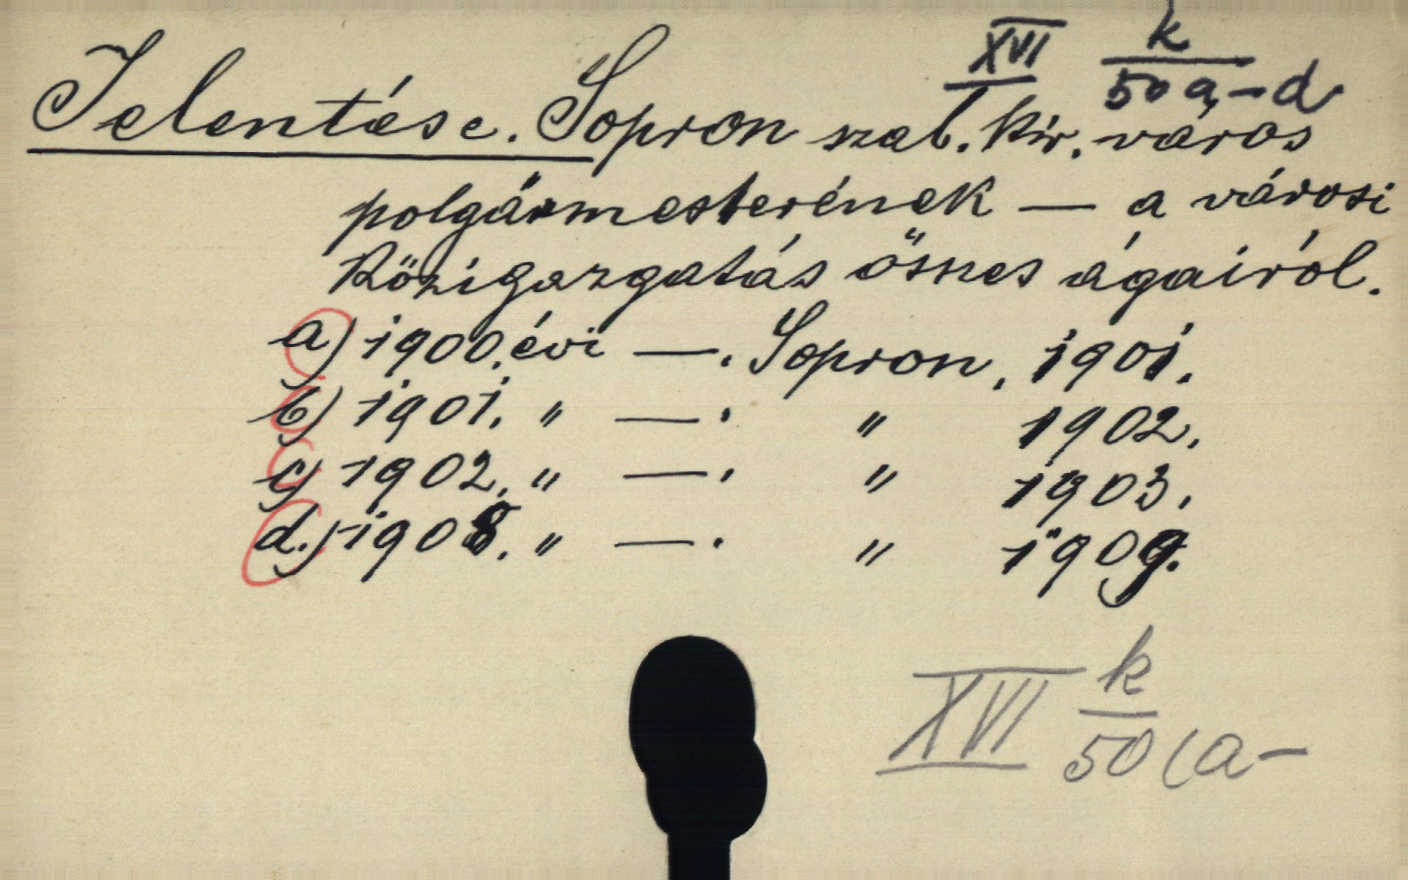 XVI k/50 a-d
Jelentése. Sopron szab. kir. város
polgármesterének — a városi
közigazgatás összes ágairól.
a) 1900. évi —. Sopron, 1901.
b) 1901. " —. " 1902.
c) 1902. " —. " 1903.
d.) 1908. " —. " 1909.
XVI k/50 (a-